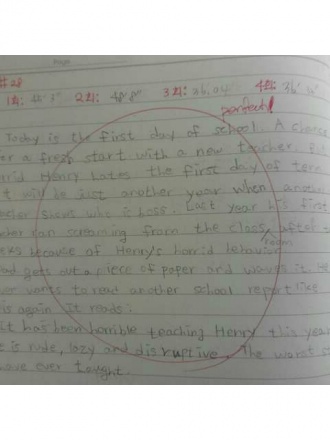 #28
1회: 2회: 48' 8" 3회: 4회:
perfect!
Today is the first day of school. A chance
a fresh start with a new teacher. But
Henry hates the first day of term
it will be just another year when another
shows who is boss. Last year his first
ran screaming from the class after
room
because of Henry's horrid behavior
gets out a piece of paper and waves it. He
wants to read another school report like
is again it reads:
It has been horrible teaching Henry this year
is rude, lazy and disruptive. The worst
have ever taught.